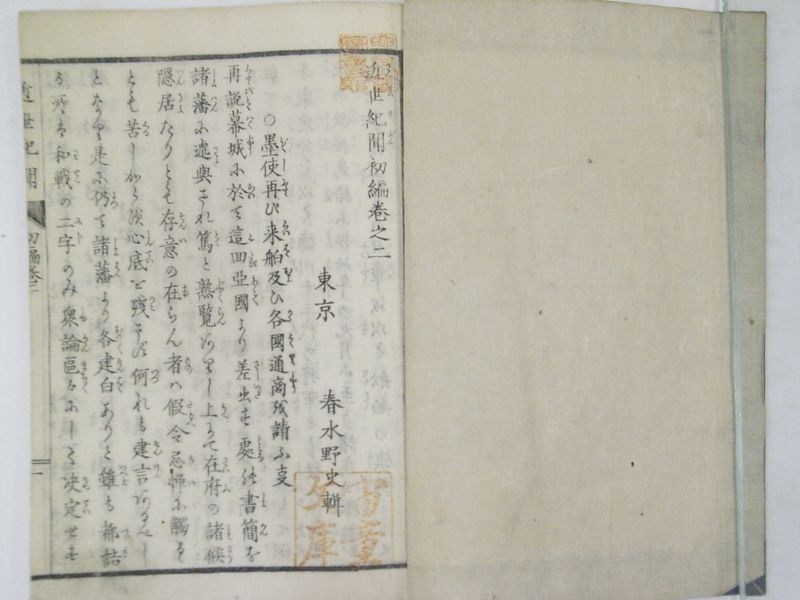 近世紀聞初編巻之二
東京 春水野史輯
○墨使再び来舶及び各國通商を請ふ支
再説幕城に於て這回亜國より差出せし處の書簡を
諸藩に遞與され篤と熟覧ありし上にて在府の諸侯
隠居たりとも存意の在らん者ハ假令忌憚に觸るゝ
とも苦しからず心底を残さず何れも建言あるべし
となり是に仍て諸藩より各建白ありと雖も都詰
る所は和戦の二字のみ衆論區々にして決定せず
近世紀聞 初編巻二 一